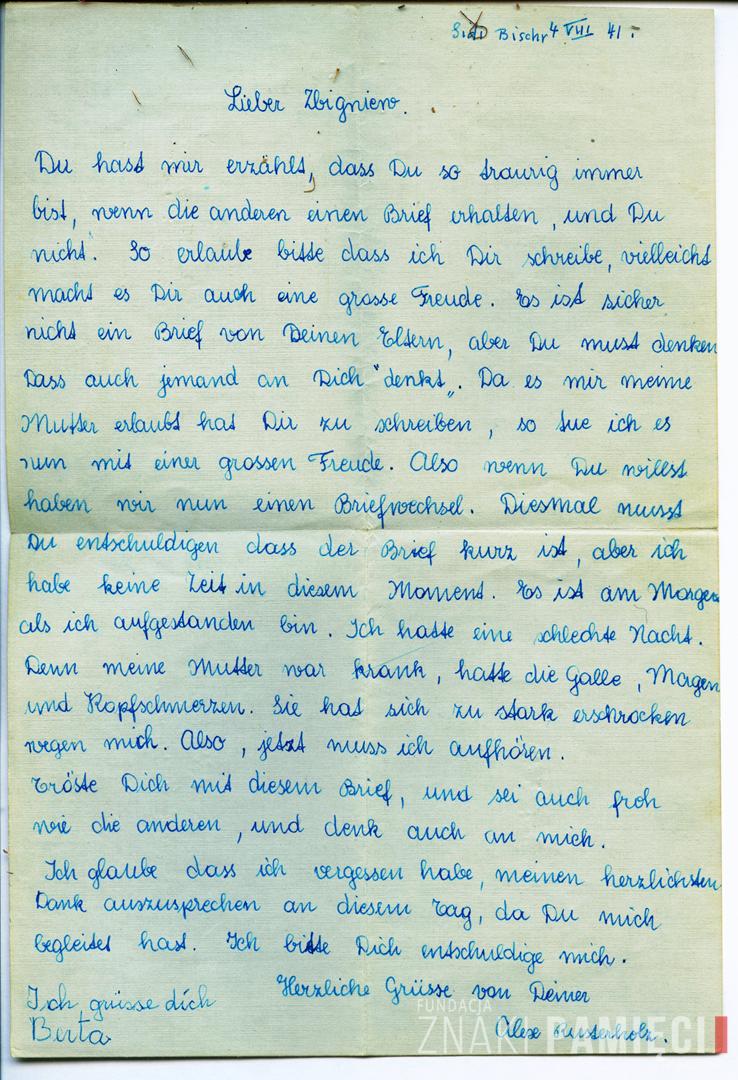 Sidi Bischr 4 VIII 41.
Lieber Zbigniew.
Du hast mir erzählt, dass Du so traurig immer
bist, wenn die anderen einen Brief erhalten, und Du
nicht. So erlaube bitte dass ich Dir schreibe, vielleicht
macht es Dir auch eine grosse Freude. Es ist sicher
nicht ein Brief von Deinen Eltern, aber Du must denken
Dass auch jemand an Dich "denkt„. Da es mir meine
Mutter erlaubt hat Dir zu schreiben, so tue ich es
nun mit einer grossen Freude. Also wenn Du willst
haben wir nun einen Briefwechsel. Diesmal musst
Du entschuldigen dass der Brief kurz ist, aber ich
habe keine Zeit in diesem Moment. Es ist am Morgen
als ich aufgestanden bin. Ich hatte eine schlechte Nacht.
Denn meine Mutter war krank, hatte die Galle, Magen
und Kopfschmerzen. Sie hat sich zu stark erschrocken
wegen mich. Also, jetzt muss ich aufhören.
Tröste Dich mit diesem Brief, und sei auch froh
wie die anderen, und denk auch an mich.
Ich glaube dass ich vergessen habe, meinen herzlichsten
Dank auszusprechen an diesem Tag, da Du mich
begleitet hast. Ich bitte Dich entschuldige mich.
Herzliche Grüsse von Deiner
Alex Rusterholz.
Ich grüsse dich
Berta
FUNDACJA
ZNAKI PAMIĘCI